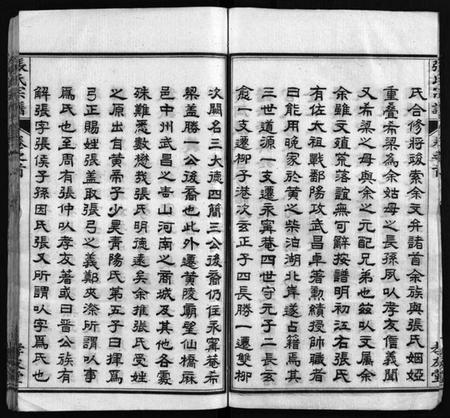 張氏宗譜
卷之首
氏合修將竣索余文弁諸首余族與張氏姻婭
重疊希梁為余姑母之長孫夙以孝友信義聞
又希梁之母與余之元配兄弟也茲以文屬余
余雖文殖荒落誼無可辭按譜明初江右張氏
有佐太祖戰鄱陽攻武昌卓著勳績授帥職者
曰能用晚家於黃之柴泊湖北岸遂占籍焉其
三世道源一支遷永甯菴四世守元子二長云
愈一支遷柳子港次云正子四長勝一遷雙柳
次闗名三大德四闗三公後裔仍住永甯菴希
梁蓋勝一公後裔也此外遷黃陵廟望仙橋麻
邑中州武昌之青山河南之商城及其他各處
殊難悉數懋哉張氏明德遠矣余推張氏受姓
之原出自黃帝子少昊青陽氏第五子曰揮為
弓正賜姓張蓋取張弓之義鄭夾漈所謂以事
為氏也至周有張仲以孝友著或曰晉公族有
解張字張侯子孫因氏張又所謂以字為氏也
張氏宗譜
卷之首
孝友堂